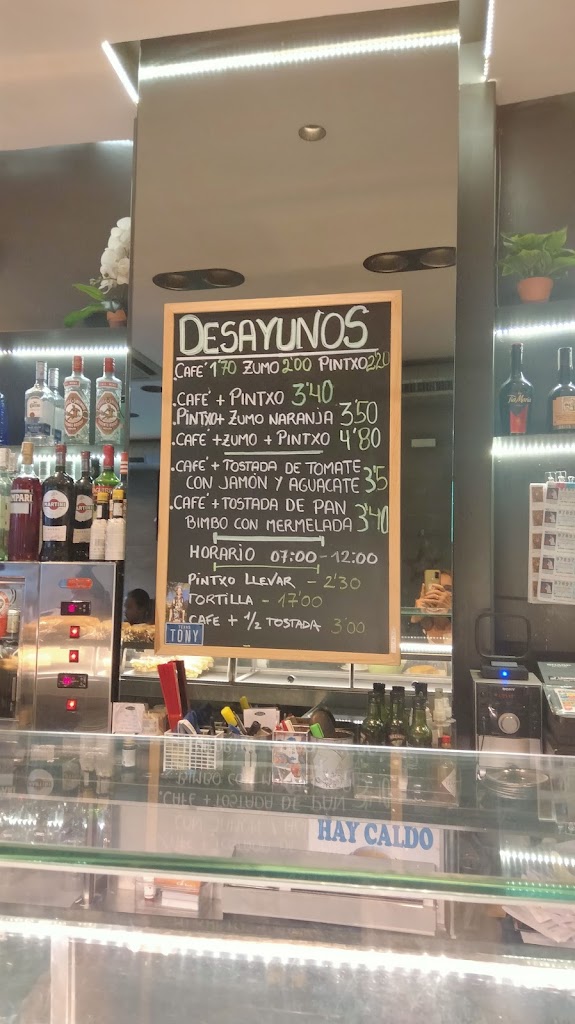 DESAYUNOS
.CAFE' 1'70 ZUMO 2'00 PINTXO 2'20
.CAFE' + PINTXO 3'40
.PINTXO + ZUMO NARANJA 3'50
.CAFE' + ZUMO + PINTXO 4'80
.CAFE' + TOSTADA DE TOMATE
CON JAMÓN Y AGUACATE 3'5
.CAFE' + TOSTADA DE PAN
BIMBO CON MERMELADA 3'40
HORARIO 07:00 - 12:00
PINTXO LLEVAR - 2'30
TORTILLA - 17'00
CAFE + 1/2 TOSTADA 3'00
TONY
MARTINI
HAY CALDO